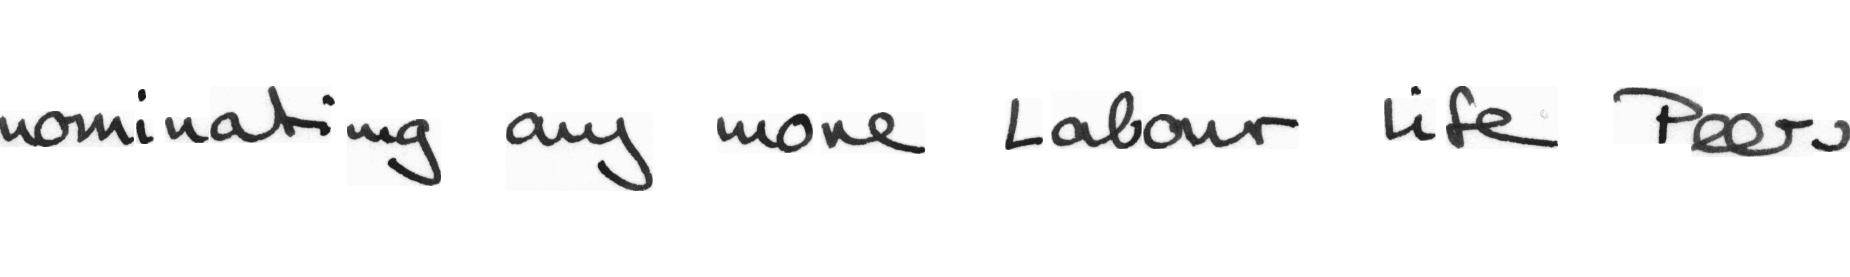 nominating any more Labour life Peers